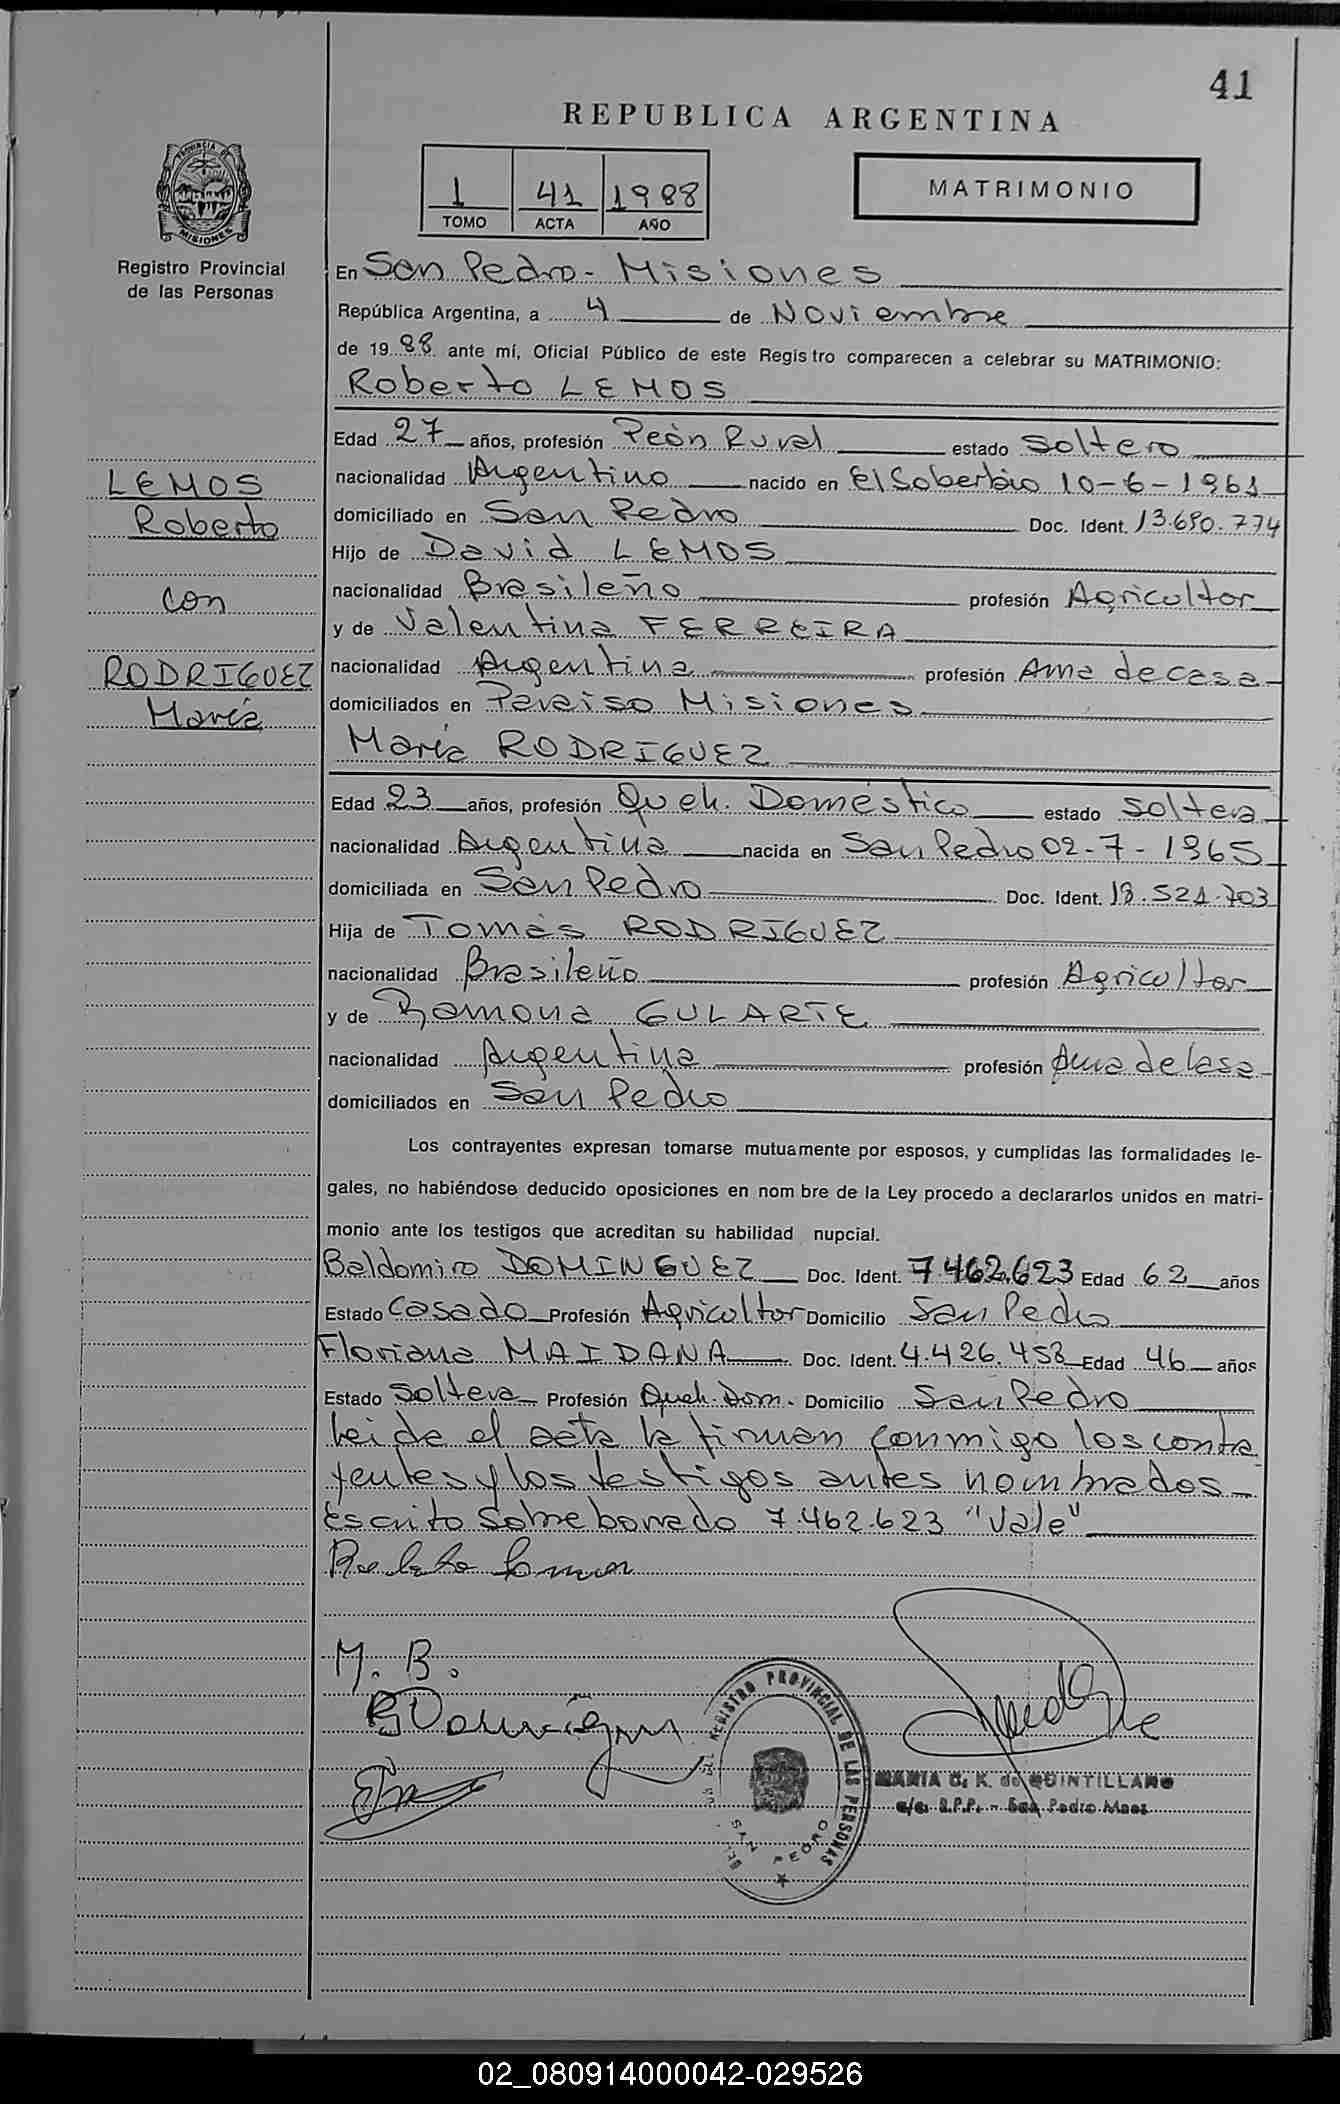 41
REPUBLICA ARGENTINA
1 41 1988
TOMO ACTA AÑO
MATRIMONIO
PROVINCIA DE MISIONES
Registro Provincial
de las Personas
En San Pedro - Misiones
República Argentina, a 4 de Noviembre
de 1988 ante mí, Oficial Público de este Registro comparecen a celebrar su MATRIMONIO:
Roberto LEMOS
Edad 27 años, profesión Peón Rural estado Soltero
nacionalidad Argentino nacido en El Soberbio 10-6-1961
domiciliado en San Pedro Doc. Ident. 13.690.774
Hijo de David LEMOS
nacionalidad Brasileño profesión Agricultor
y de Valentina FERREIRA
nacionalidad Argentina profesión Ama de casa
domiciliados en Paraiso Misiones
María RODRIGUEZ
LEMOS
Roberto
con
RODRIGUEZ
María
Edad 23 años, profesión Queh. Doméstico estado soltera
nacionalidad Argentina nacida en San Pedro 02-7-1965
domiciliada en San Pedro Doc. Ident. 18.521.703
Hija de Tomás RODRIGUEZ
nacionalidad Brasileño profesión Agricultor
y de Ramona GULARTE
nacionalidad Argentina profesión Ama de Casa
domiciliados en San Pedro
Los contrayentes expresan tomarse mutuamente por esposos, y cumplidas las formalidades le-
gales, no habiéndose deducido oposiciones en nombre de la Ley procedo a declararlos unidos en matri-
monio ante los testigos que acreditan su habilidad nupcial.
Baldomiro DOMINGUEZ Doc. Ident. 7.462.623 Edad 62 años
Estado Casado Profesión Agricultor Domicilio San Pedro
Floriana MAIDANA Doc. Ident. 4.426.453 Edad 46 años
Estado Soltera Profesión Queh. Dom. Domicilio San Pedro
Leida el acta la firman conmigo los contra
yentes y los testigos antes nombrados
Escrito Sobre borrado 7.462.623 "Vale"
M. B.
REGISTRO PROVINCIAL DE LAS PERSONAS
SAN PEDRO
MARIA C. K. de QUINTILLANO
a/c. R.P.P. - San Pedro Mnes.
02_080914000042-029526